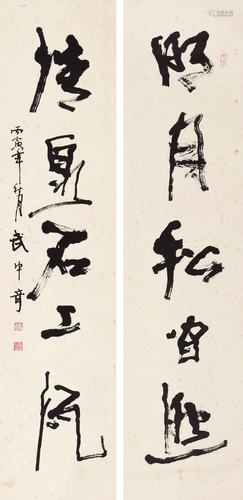 明月松间照
清泉石上流
丙寅年秋月 武中奇